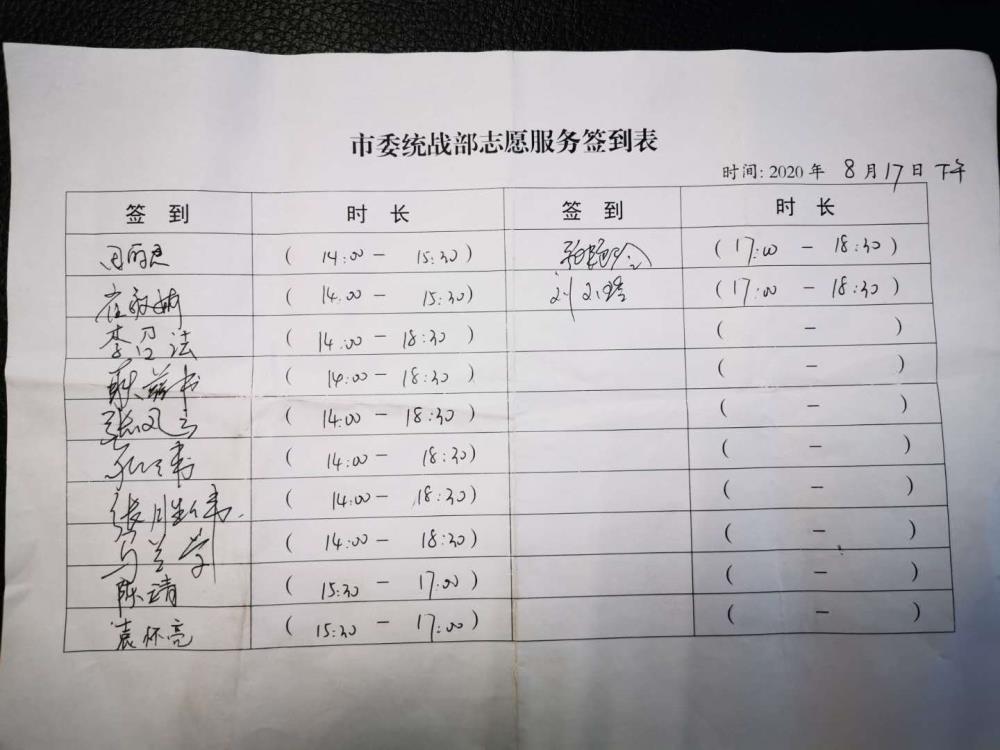 市委统战部志愿服务签到表
时间: 2020 年 8 月 17 日 下午
签 到 时 长 签 到 时 长
( 14:00 - 15:30 ) ( 17:00 - 18:30 )
崔 ( 14:00 - 15:30 ) 刘 ( 17:00 - 18:30 )
李召法 ( 14:00 - 18:30 ) ( - )
( 14:00 - 18:30 ) ( - )
张风云 ( 14:00 - 18:30 ) ( - )
( 14:00 - 18:30 ) ( - )
张胜伟 ( 14:00 - 18:30 ) ( - )
马兰芳 ( 14:00 - 18:30 ) ( - )
陈靖 ( 15:30 - 17:00 ) ( - )
袁怀亮 ( 15:30 - 17:00 ) ( - )